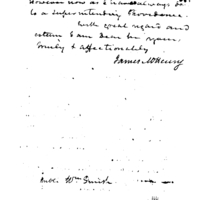 However now as I have always do
to a Superintending Providence.
With great regard and
esteem I am Dear Sir yours
truly & affectionately
James McHenry
Wm Smith